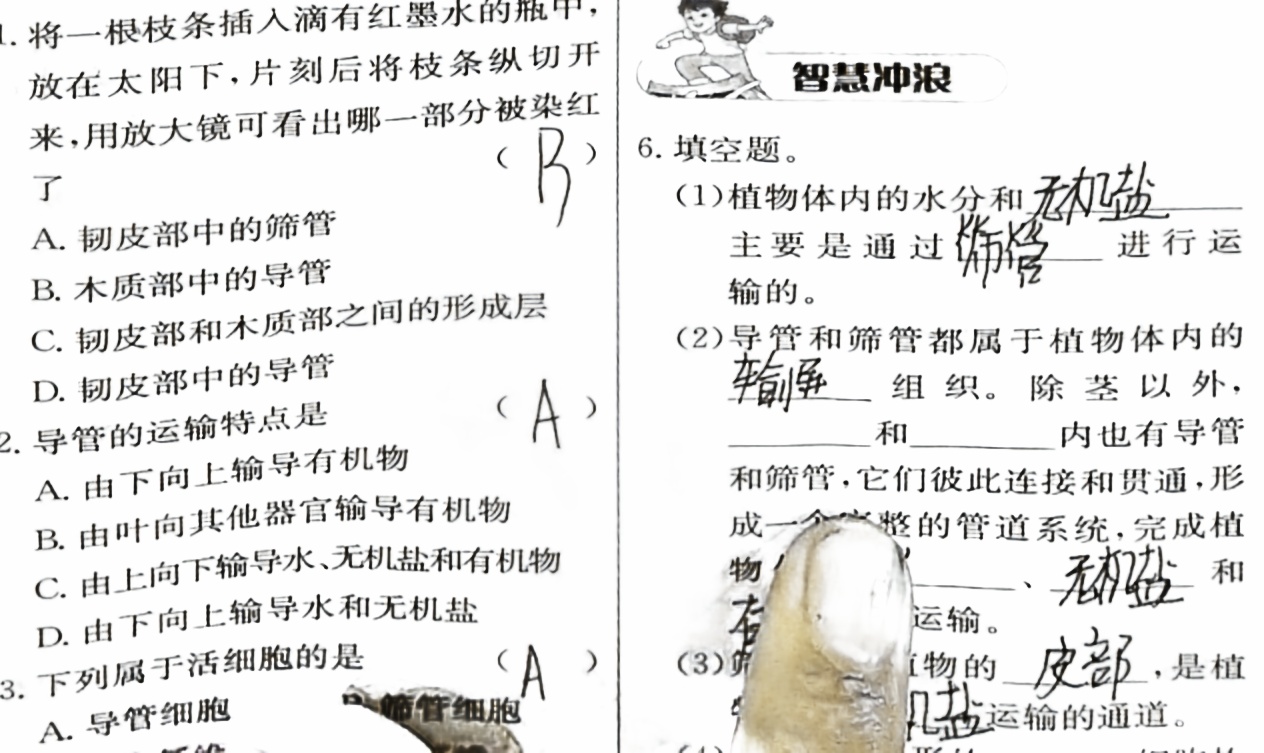 1. 将一根枝条插入滴有红墨水的瓶中,
放在太阳下,片刻后将枝条纵切开
来,用放大镜可看出哪一部分被染红
了 ( B )
A. 韧皮部中的筛管
B. 木质部中的导管
C. 韧皮部和木质部之间的形成层
D. 韧皮部中的导管
2. 导管的运输特点是 ( A )
A. 由下向上输导有机物
B. 由叶向其他器官输导有机物
C. 由上向下输导水、无机盐和有机物
D. 由下向上输导水和无机盐
3. 下列属于活细胞的是 ( A )
A. 导管细胞 筛管细胞
智慧冲浪
6. 填空题。
(1)植物体内的水分和 无机盐
主要是通过 筛管 进行运
输的。
(2)导管和筛管都属于植物体内的
输导 组织。除茎以外,
和 内也有导管
和筛管,它们彼此连接和贯通,形
成一个完整的管道系统,完成植
物 、 无机盐 和
运输。
(3) 植物的 皮部 ,是植
机盐 运输的通道。